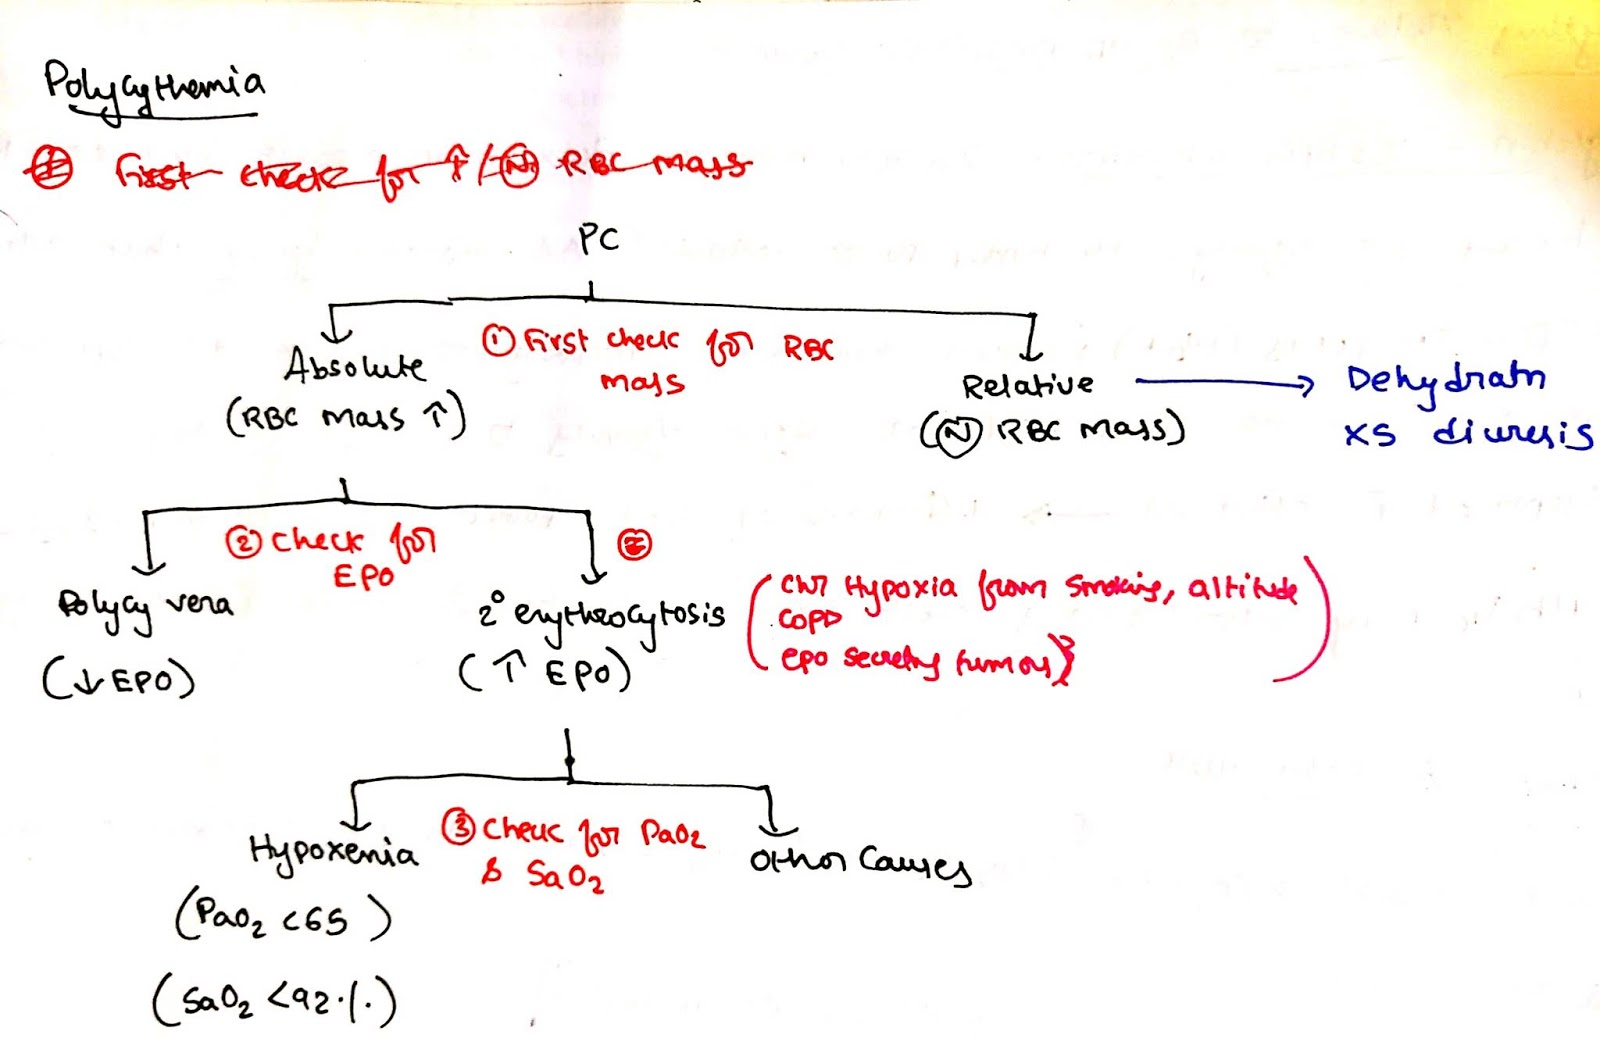 Polycythemia
① First check for ↑/Ⓝ RBC mass
PC
Absolute
(RBC mass ↑)
① First check for RBC
mass
Relative
(Ⓝ RBC mass)
Dehydratn
XS diuresis
② Check for
EPO
Polycy vera
(↓ EPO)
2° erythrocytosis
(↑ EPO)
②
(Chr Hypoxia from smoking, altitude
COPD
epo secreting tumors)
③ Check for PaO2
& SaO2
Hypoxemia
(PaO2 <65)
(SaO2 <92%)
Other Causes